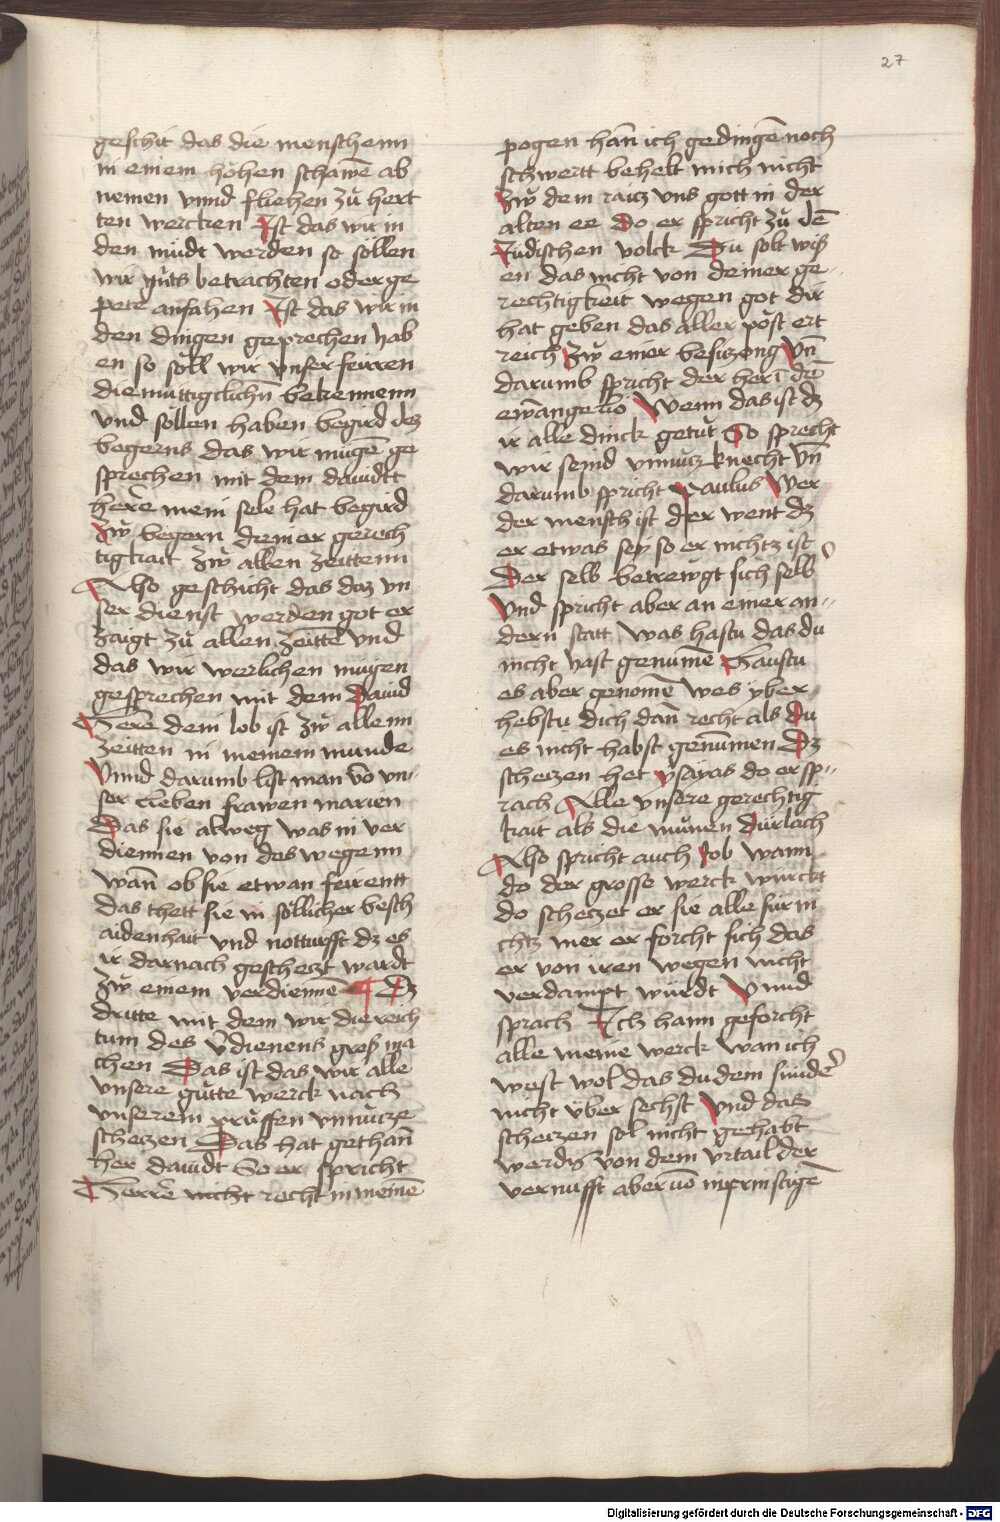 27
geschit das die menschenn
in einem hohen schawē ab
nemen vnnd fliehen zů hert
ten wercken Ist das wir in
den müdt werden so söllen
wir gůts betrachten oder ge
pete anfahen Ist das wir in
den dingen geprechen hab
en so söll wir vnser feirren
diemüttigtlichn̄ bekennenn
vnd söllen haben begird des
begerns das wir mügē ge
sprechen mit dem dauidt
herre mein sele hat begird
zů begern deiner gerech
tigkait zů allen zeittenn
Also geschicht das daz vn
ser dienst werden got er
zaigt zů allen zeittē vnd
das wir werlichen mügen
gesprechen mit dem Dauid
Herre dein lob ist zů allenn
zeitten in meinem munde
Vnnd darumb list man vō vn-
ser lieben frawen marien
Das sie alweg was in ver
diennen von des wegenn
wan̄ ob sie etwan feirentt
das thett sie in söllicher besch
aidenhait vnd notturfft dz es
ir darnach geschetzt wardt
zů einem verdiennē ¶ Dz
dritte mit dem wir die reich
tum des v̄dienens groß ma
chen Das ist das wir alle
vnsere gůtte werck nach
vnserem prüffen vnnůcze
schetzen Das hat gethan̄
her dauidt So er spricht
Herre nicht recht in meinē
pogen han̄ ich gedingē noch
schwertt behelt mich nicht
Zů dem raicz vns gott in der
alten ee Do er spricht zů dē
Judischen volck Du solt wiß
en das nicht von deiner ge-
rechtigkeit wegen got dir
hat geben das aller pöst ert
reich zů einer besiczong Vn̄
darumb spricht der her ī dē
ewangeliō Wenn das ist dz
ir alle dinck getůt So sprecht
wir seind vnnůcz knecht vn̄
darumb spricht Paulus Wer
der mensch ist der went dz
er etwas sey so er nichtz ist
Der selb betrewgt sich selb
Vnd spricht aber an einer an-
dern statt was hastu das du
nicht hast genumē Hastu
es aber genomē wes yber
hebstu dich dan̄ recht als du
es nicht habst genūmen Dz
schetzen het ysayas do er sp-
rach Alle vnsere gerechtig
kait als die
Also spricht auch Job wann
do der grosse werck würckt
do schetzet er sie alle für ni
chtz mer er forcht sich das
er von iren wegen nicht
verdampt würdt Vnnd
sprach Ich hann geforcht
alle meine werck wan ich
west wol das du dem sündē
nicht über sechst Vnd das
schetzen sol nicht gehabt
werdn̄ von dem vrtail der
vernufft aber vō inprinstigē
Digitalisierung gefördert durch die Deutsche Forschungsgemeinschaft - DFG